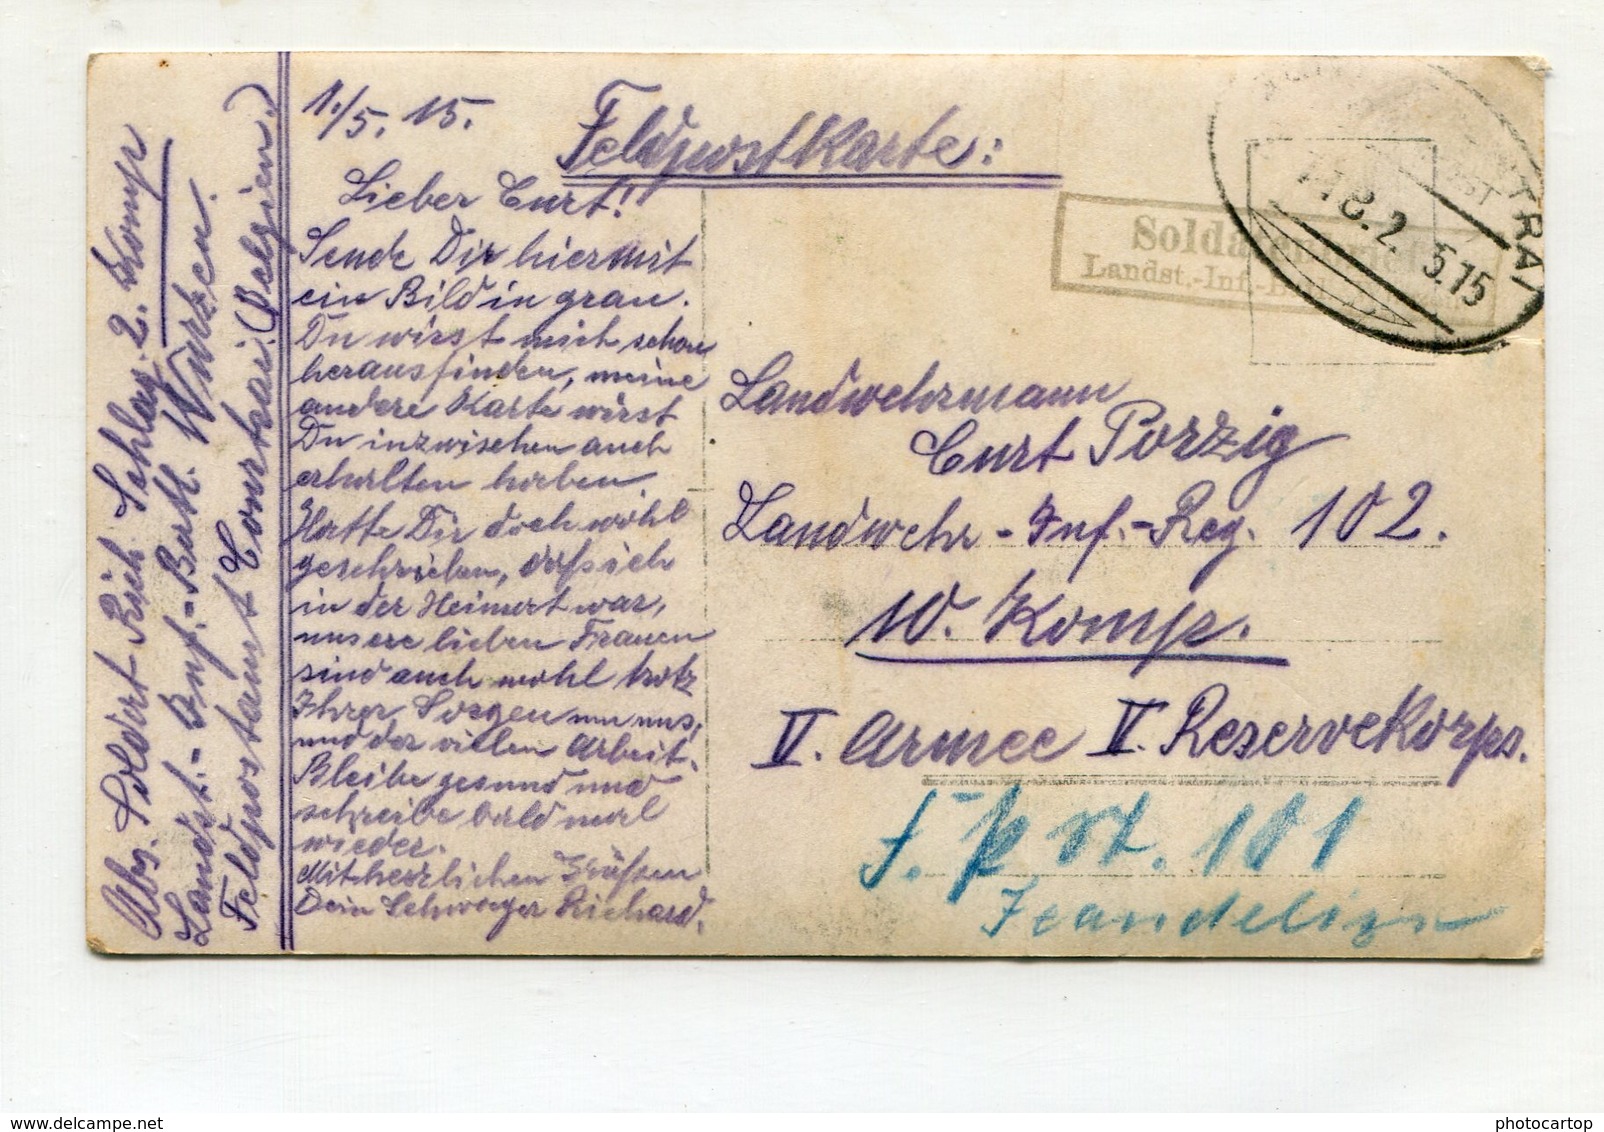 Abs. Soldat Rich. Schlag. 2. Komp
Landst.-Inf.-Batl. Wurzen.
Feldpostamt Courtrai (Belgien.)
1./5. 15.
Feldpostkarte:
Lieber Curt!
Sende Dir hiermit
ein Bild in grau.
Du wirst mich schon
herausfinden, meine
andere Karte wirst
Du inzwischen auch
erhalten haben
Hatte Dir doch wohl
geschrieben, daß ich
in der Heimat war,
unsere lieben Frauen
sind auch wohl trotz
Ihrer Sorgen um uns,
und der vielen Arbeit.
Bleibe gesund und
schreibe bald mal
wieder.
Mit herzlichen Grüßen
Dein Schwager Richard.
Soldatenbrief
Landst.-Inf.-
TRAI
2. 5.15
Landwehrmann
Curt Porzig
Landwehr-Inf.-Reg. 102.
10. Komp.
V. Armee V. Reservekorps.
F. p. st. 101
photocartop